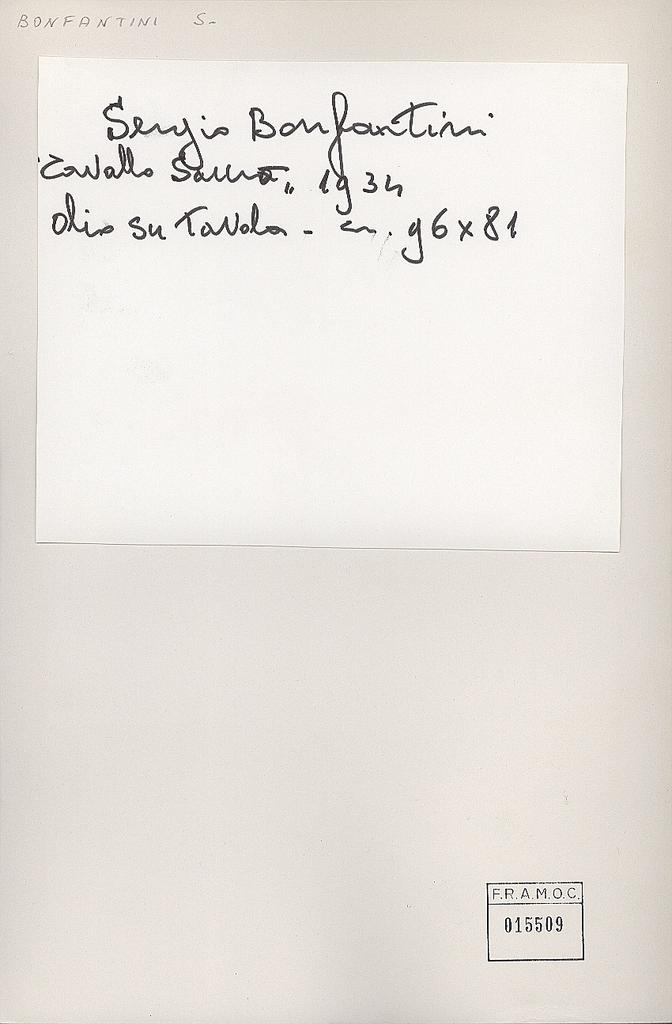 BONFANTINI S-
Sergio Bonfantini
"Cavallo Sauro" 1934
olio su tavola - cm. 96x81
F.R.A.M.O.C.
015509